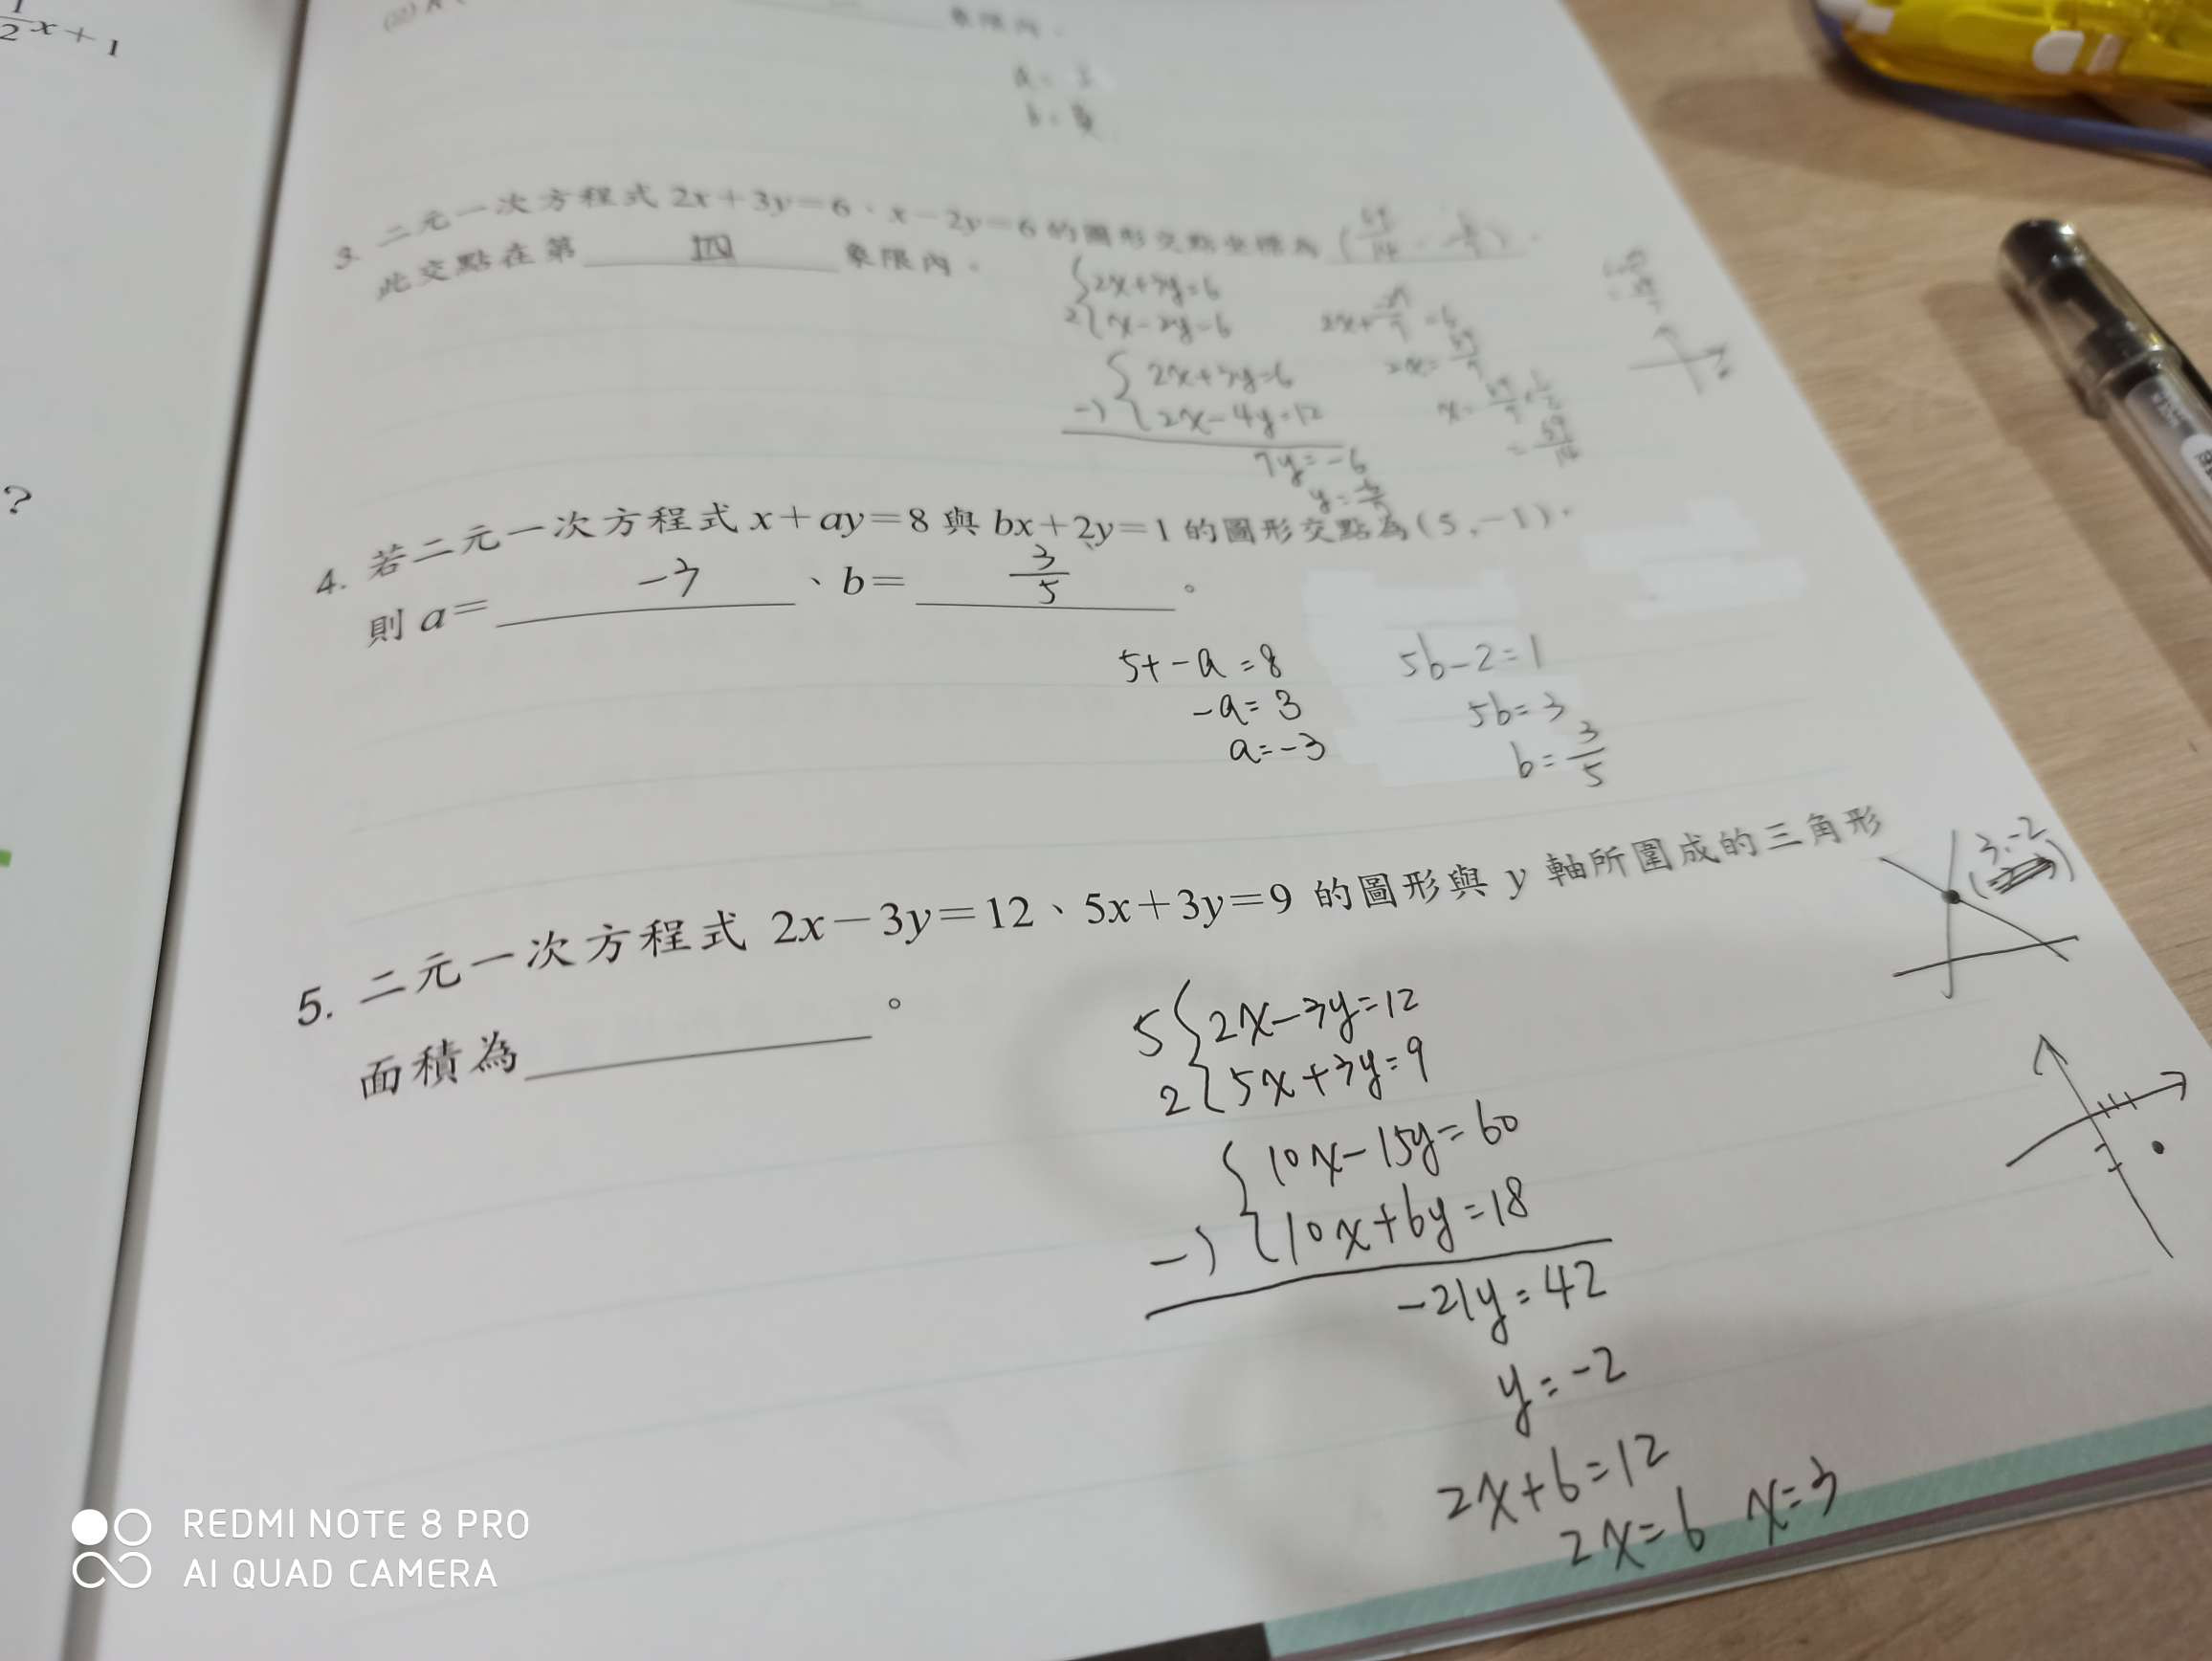 ½x+1
?
象限內。
a=
b=
3. 二元一次方程式 2x+3y=6、x-2y=6 的圖形交點坐標為
此交點在第 四 象限內。
2x+3y=6
2 x-2y=6
2x+3y=6
-) 2x-4y=12
7y=-6
4. 若二元一次方程式 x+ay=8 與 bx+2y=1 的圖形交點為(5,-1),
則 a= -3 、b= 3/5 。
5+-a=8
-a=3
a=-3
5b-2=1
5b=3
b=3/5
5. 二元一次方程式 2x-3y=12、5x+3y=9 的圖形與 y 軸所圍成的三角形
面積為 。
3,-2
5 2x-3y=12
2 5x+3y=9
10x-15y=60
-) 10x+6y=18
-21y=42
y=-2
2x+6=12
2x=6 x=3
REDMI NOTE 8 PRO
AI QUAD CAMERA